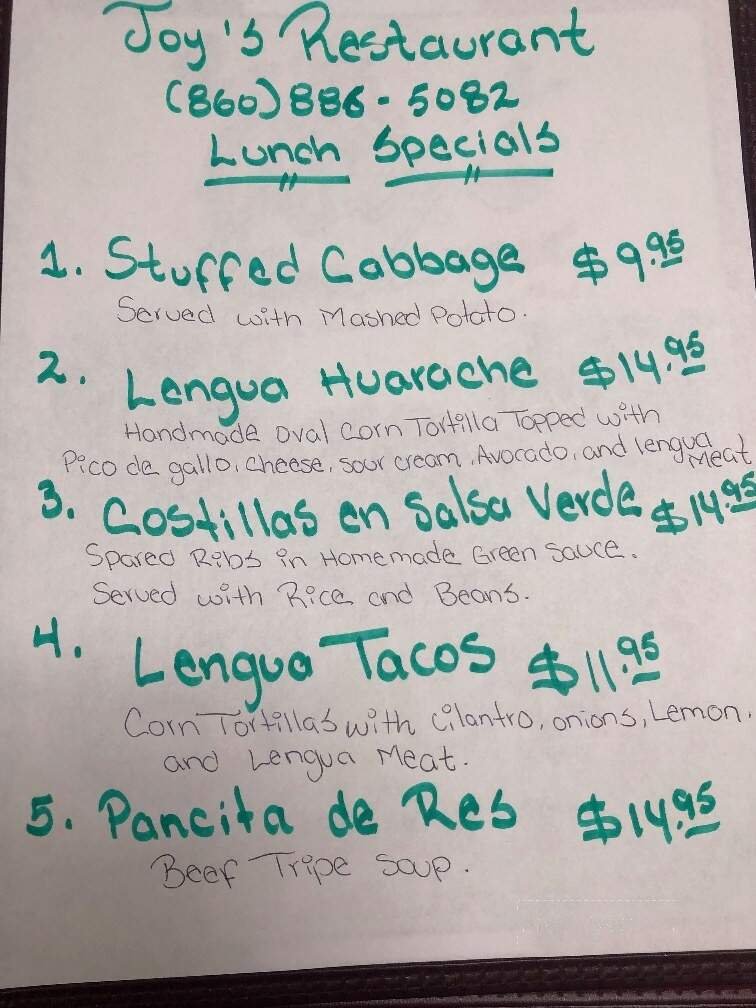 Joy's Restaurant
(860) 886-5082
Lunch Specials
1. Stuffed Cabbage $9.95
Served with Mashed Potato.
2. Lengua Huarache $14.95
Handmade Oval Corn Tortilla Topped with
Pico de gallo, cheese, sour cream, Avocado, and lengua
Meat
3. Costillas en Salsa Verde $14.95
Spared Ribs in Homemade Green Sauce.
Served with Rice and Beans.
4. Lengua Tacos $11.95
Corn Tortillas with cilantro, onions, Lemon,
and Lengua Meat.
5. Pancita de Res $14.95
Beef Tripe Soup.